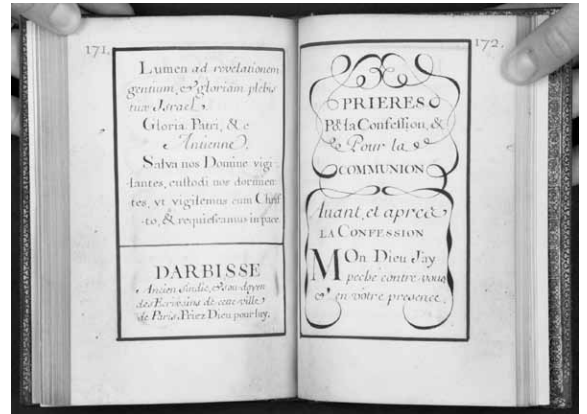 171.
Lumen ad revelationem
gentium, & gloriam plebis
tuæ Israel.
Gloria Patri, & c
Antienne.
Salva nos Domine vigi-
-lantes, custodi nos dormien-
tes, vt vigilemus cum Chris-
-to, & requiescamus in pace.
DARBISSE
Ancien sindic, & sou-doyen
des Ecrivains de cette ville
de Paris. Priez Dieu pour luy.
172.
PRIERES
Pr. la Confession, &
Pour la
COMMUNION
Avant, et aprés
LA CONFESSION
MOn Dieu J'ay
peché contre vous
& en vôtre presence.